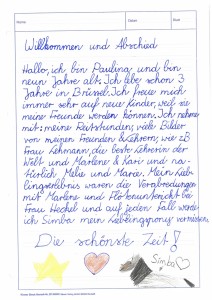 Name:
Datum:
Blatt:
Willkommen und Abschied
Hallo, ich bin Paulina und bin
neun Jahre alt. Ich lebe schon 3
Jahre in Brüssel. Ich freue mich
immer sehr auf neue Kinder, weil sie
meine Freunde werden können. Ich nehme
mit: meine Reitstunden, viele Bilder
von meinen Freunden & Lehrern, wie zB
Frau Lehmann, die beste Lehrerin der
Welt und Marlene & Kari und na-
türlich Melu und Marie. Mein Lieb-
lingserlebnis waren die Verabredungen
mit Marlene und Flötenunterricht bei
Frau Hechel und auf jeden Fall werde
ich Simba mein Lieblingspony vermissen.
Die schönste Zeit!
Simba